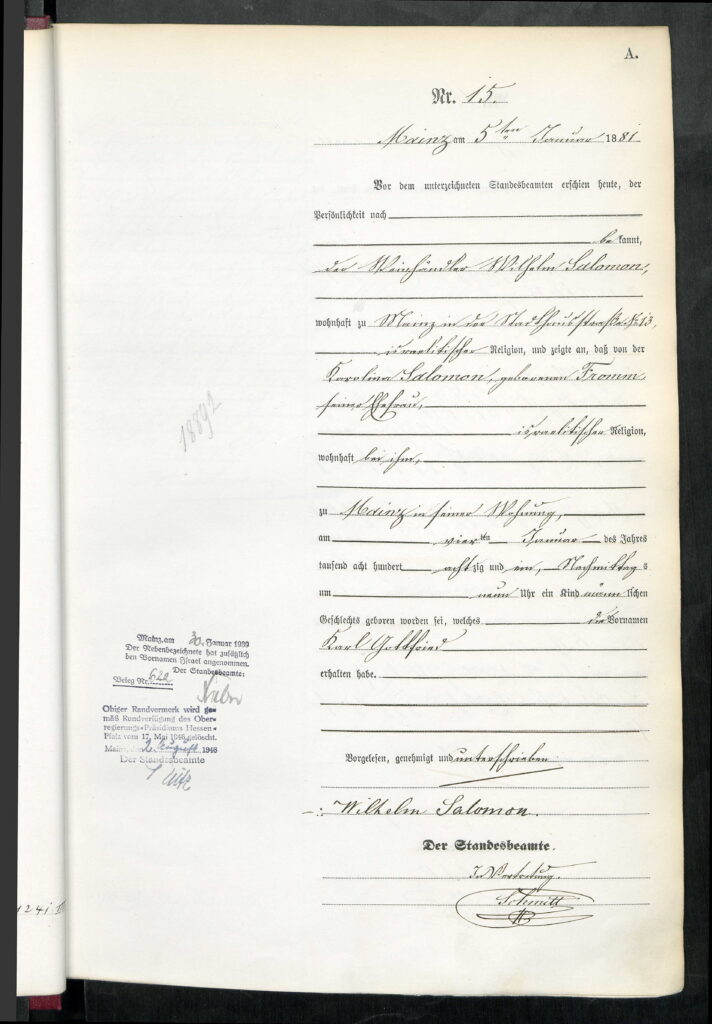 A.
Nr. 15.
Mainz am 5ten Januar 1881
Vor dem unterzeichneten Standesbeamten erschien heute, der
Persönlichkeit nach
bekannt,
der Weinhändler Wilhelm Salomon,
wohnhaft zu Mainz in der Stadthausstraße № 13,
israelitischer Religion, und zeigte an, daß von der
Karolina Salomon, geborenen Fromm,
seiner Ehefrau,
israelitischer Religion,
wohnhaft bei ihm,
zu Mainz in seiner Wohnung,
am vierten Januar des Jahres
tausend acht hundert achtzig und ein, Nachmittags
um neun Uhr ein Kind männlichen
Geschlechts geboren worden sei, welches die Vornamen
Karl Gottfried
erhalten habe.
Vorgelesen, genehmigt und unterschrieben
Wilhelm Salomon.
Der Standesbeamte.
In Vertretung.
Schmitt
18892
Mainz, am 30. Januar 1939
Der Nebenbezeichnete hat zusätzlich
den Vornamen Israel angenommen.
Der Standesbeamte:
Beleg Nr. 622
Obiger Randvermerk wird ge-
mäß Rundverfügung des Ober-
regierungs-Präsidiums Hessen-
Pfalz vom 17. Mai 1946 gelöscht.
Mainz, den 2. August 1946
Der Standesbeamte